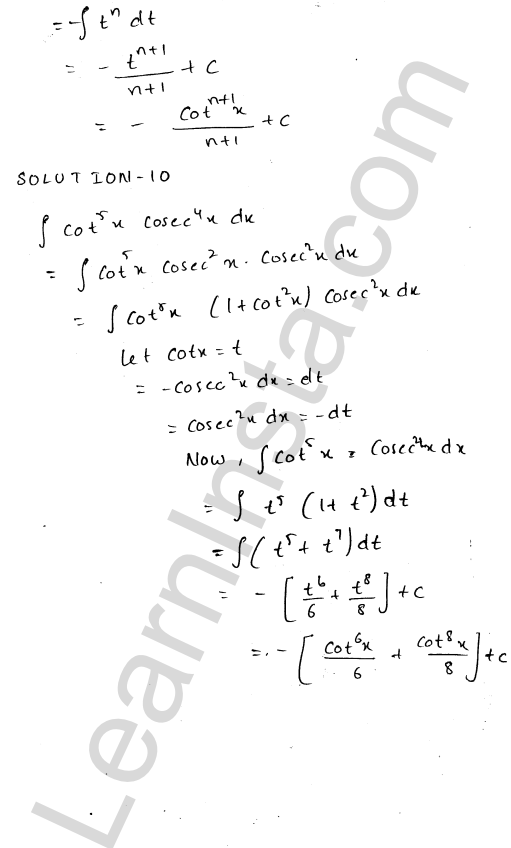 = -∫ t^n dt
= - t^(n+1)/(n+1) + c
= - cot^(n+1) x/(n+1) + c
SOLUTION-10
∫ cot^5 x cosec^4 x dx
= ∫ cot^5 x cosec^2 x . cosec^2 x dx
= ∫ cot^5 x (1+cot^2 x) cosec^2 x dx
let cotx = t
= -cosec^2 x dx = dt
= cosec^2 x dx = -dt
Now, ∫ cot^5 x = cosec^4 x dx
= ∫ t^5 (1+ t^2) dt
= ∫ (t^5 + t^7) dt
= - [t^6/6 + t^8/8] + c
= - [cot^6 x/6 + cot^8 x/8] + c
LearnInsta.com